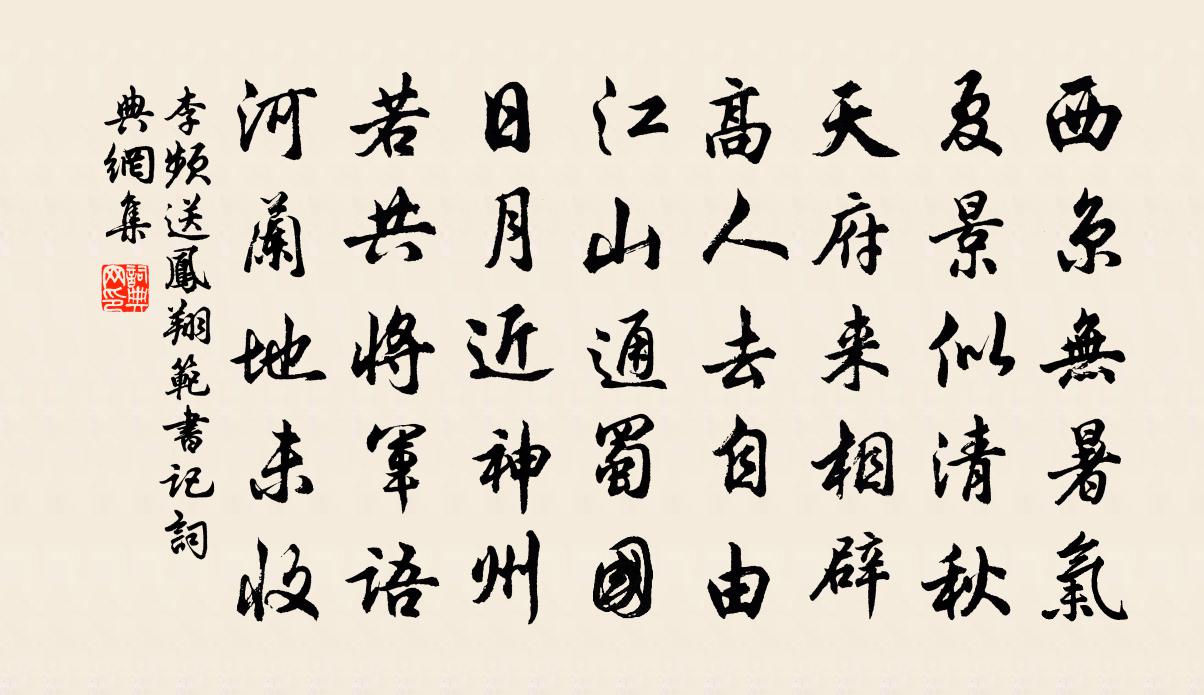 西京無暑氣
夏景似清秋
天府来相辟
高人去自由
江山通蜀國
日月近神州
若共將軍語
河蘭地未收
李頻送鳳翔範書記詞
典網集
詞典
网印